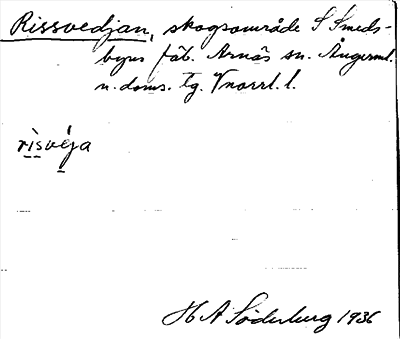 Rissvedjan, skogsområde S Smeds-
byns fäb. Arnäs sn. Ångerml.
n. doms. tg. Vnorrl. l.
risvéja
H A Söderberg 1936